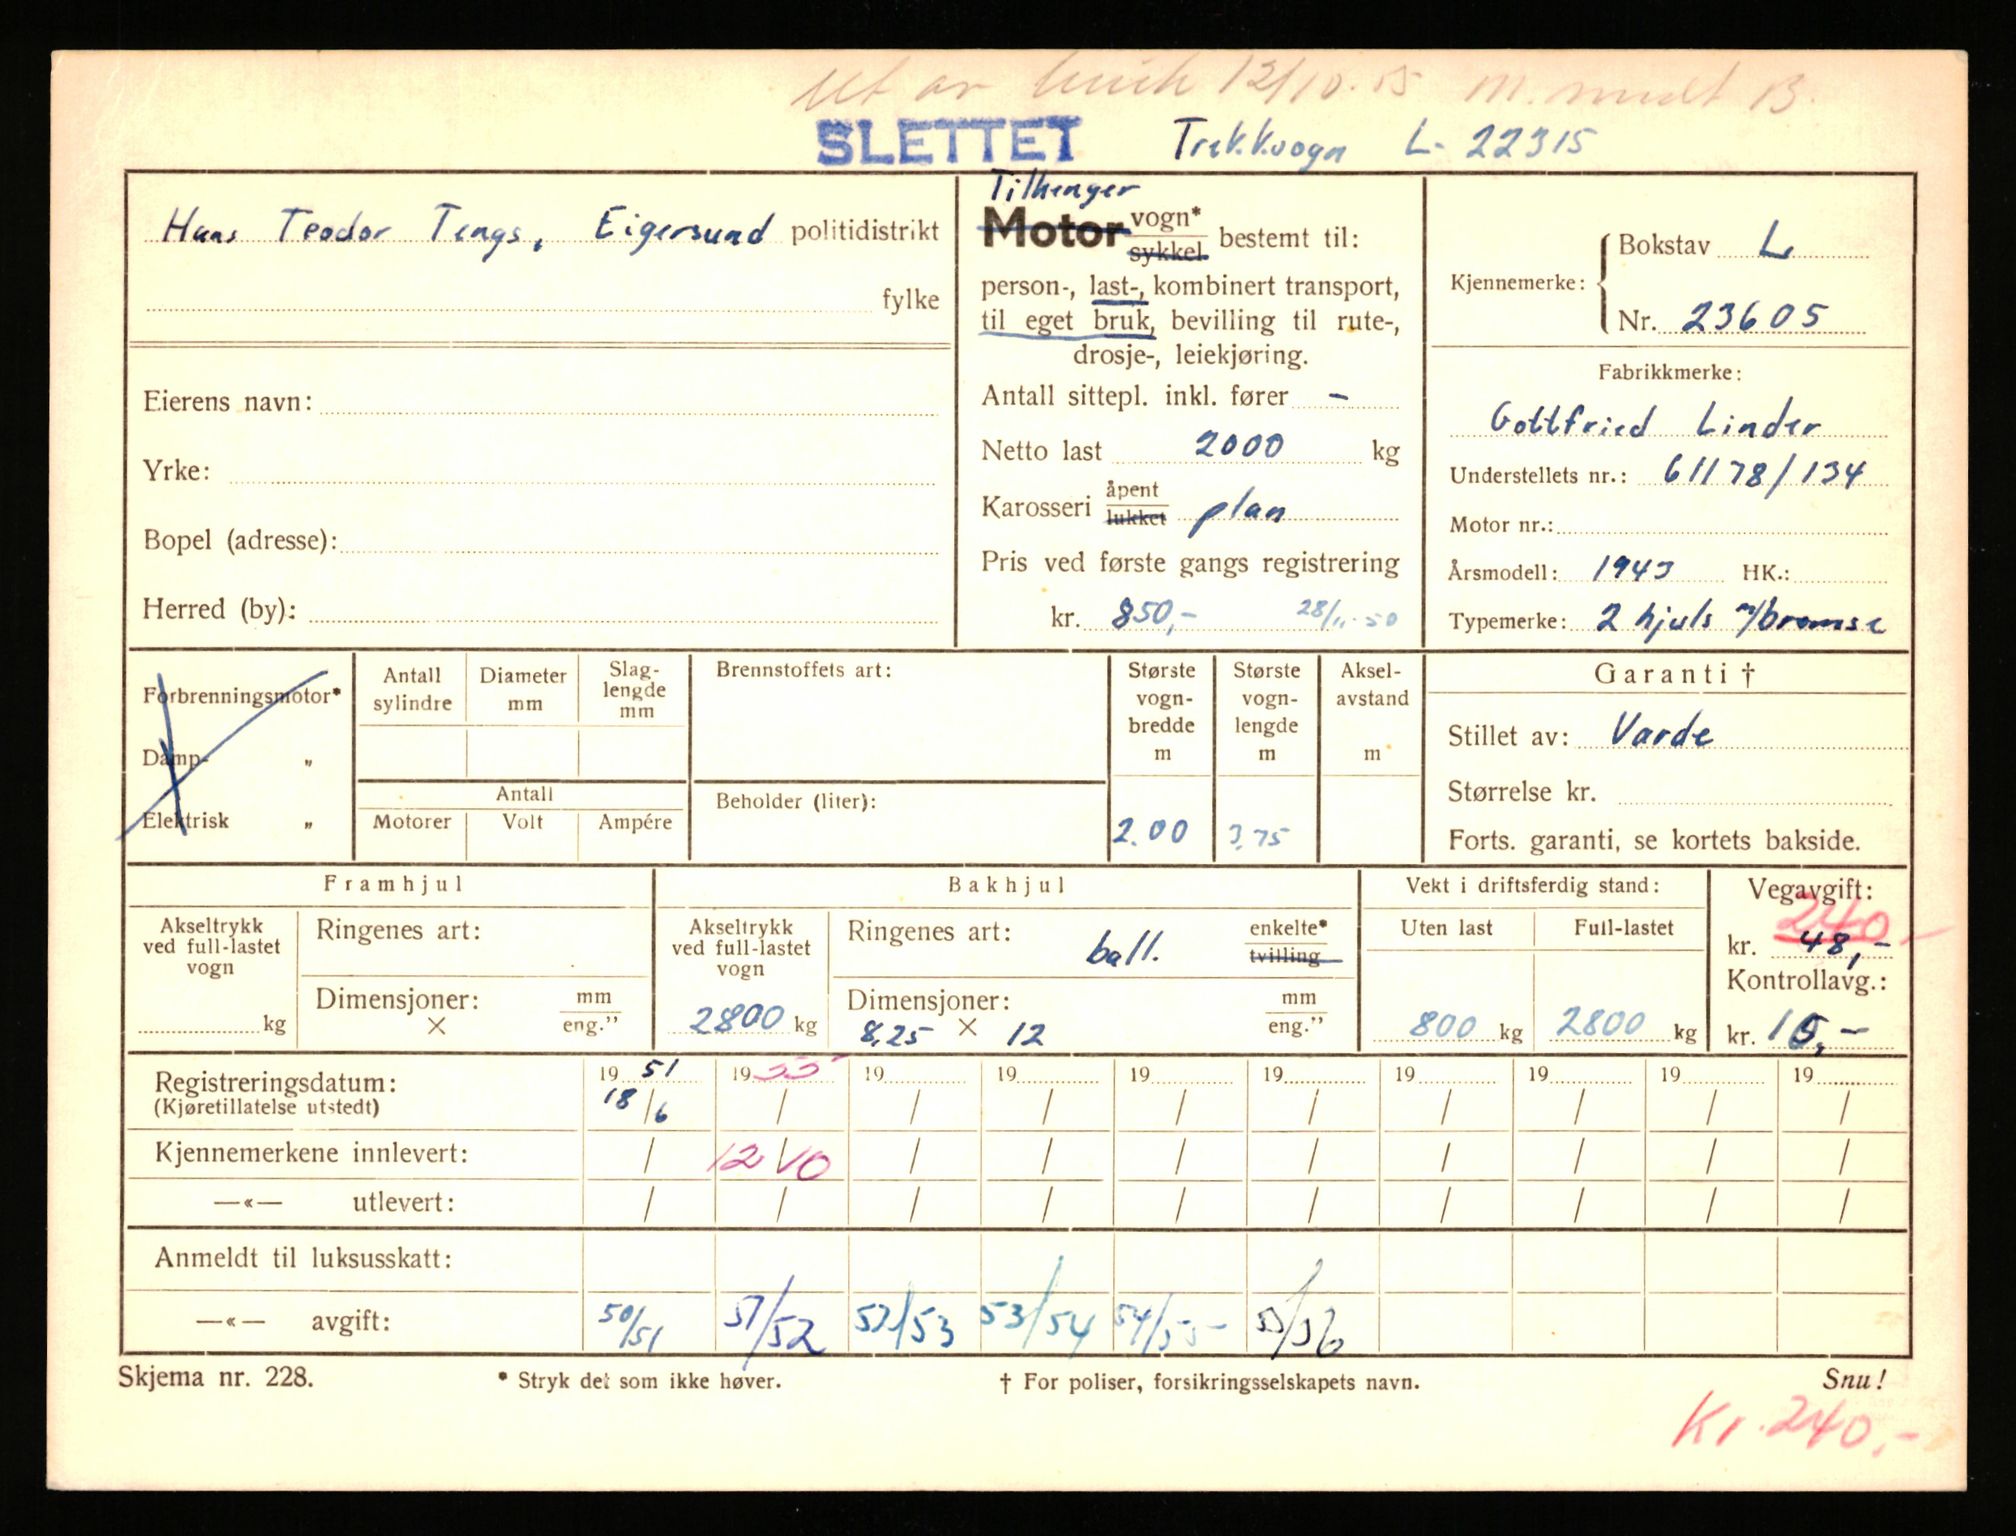 Ut av bruk 12/10.55 M. B.
SLETTET Trekkvogn L- 22315
Hans Teodor Tengs, Eigersund politidistrikt
fylke
Eierens navn:
Yrke:
Bopel (adresse):
Herred (by):
Tilhenger
Motor vogn* sykkel bestemt til:
person-, last-, kombinert transport,
til eget bruk, bevilling til rute-,
drosje-, leiekjøring.
Antall sittepl. inkl. fører -
Netto last 2000 kg
Karosseri åpent lukket plan
Pris ved første gangs registrering
kr. 850,- 28/11-50
Kjennemerke: Bokstav L
Nr. 23605
Fabrikkmerke:
Gottfried Linder
Understellets nr.: 61178/134
Motor nr.:
Årsmodell: 1943 HK.:
Typemerke: 2 hjuls m/bromse
Forbrenningsmotor*
Damp- „
Elektrisk „
Antall sylindre
Diameter mm
Slag-lengde mm
Antall
Motorer Volt Ampére
Brennstoffets art:
Beholder (liter):
Største vogn-bredde m
2.00
Største vogn-lengde m
3,75
Aksel-avstand m
Garanti †
Stillet av: Varde
Størrelse kr.
Forts. garanti, se kortets bakside.
Framhjul
Akseltrykk ved full-lastet vogn
kg
Ringenes art:
Dimensjoner: mm
× eng.”
Bakhjul
Akseltrykk ved full-lastet vogn
2800 kg
Ringenes art: ball. enkelte* tvilling
Dimensjoner: mm
8,25 × 12 eng.”
Vekt i driftsferdig stand:
Uten last Full-lastet
800 kg 2800 kg
Vegavgift:
240,-
kr. 48,-
Kontrollavg.:
kr. 15,-
Registreringsdatum: 19 51 19 55 19 19 19 19 19 19 19 19
(Kjøretillatelse utstedt) 18/6 / / / / / / / / /
Kjennemerkene innlevert: / 12/10 / / / / / / / /
—«— utlevert: / / / / / / / / / /
Anmeldt til luksusskatt:
—«— avgift: 50/51 51/52 52/53 53/54 54/55 55/56
Skjema nr. 228. * Stryk det som ikke høver. † For poliser, forsikringsselskapets navn. Snu!
Kr. 240,-